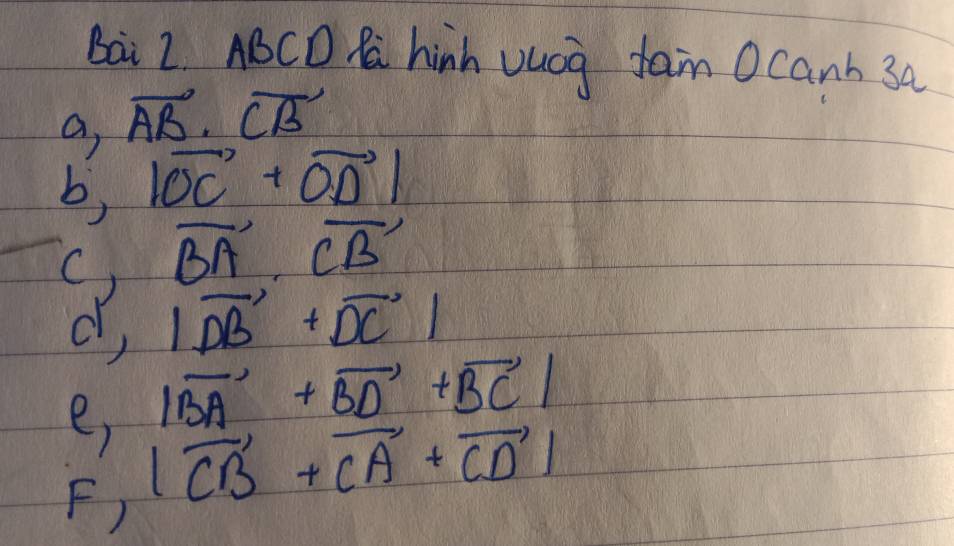 Bài 2. ABCD là hình vuông tâm O cạnh 3a
a, $\overrightarrow{AB}$ . $\overrightarrow{CB}$
b, |$\overrightarrow{OC}$ + $\overrightarrow{OD}$|
c, $\overrightarrow{BA}$ . $\overrightarrow{CB}$
d, |$\overrightarrow{DB}$ + $\overrightarrow{DC}$|
e, |$\overrightarrow{BA}$ + $\overrightarrow{BD}$ + $\overrightarrow{BC}$|
F, |$\overrightarrow{CB}$ + $\overrightarrow{CA}$ + $\overrightarrow{CD}$|